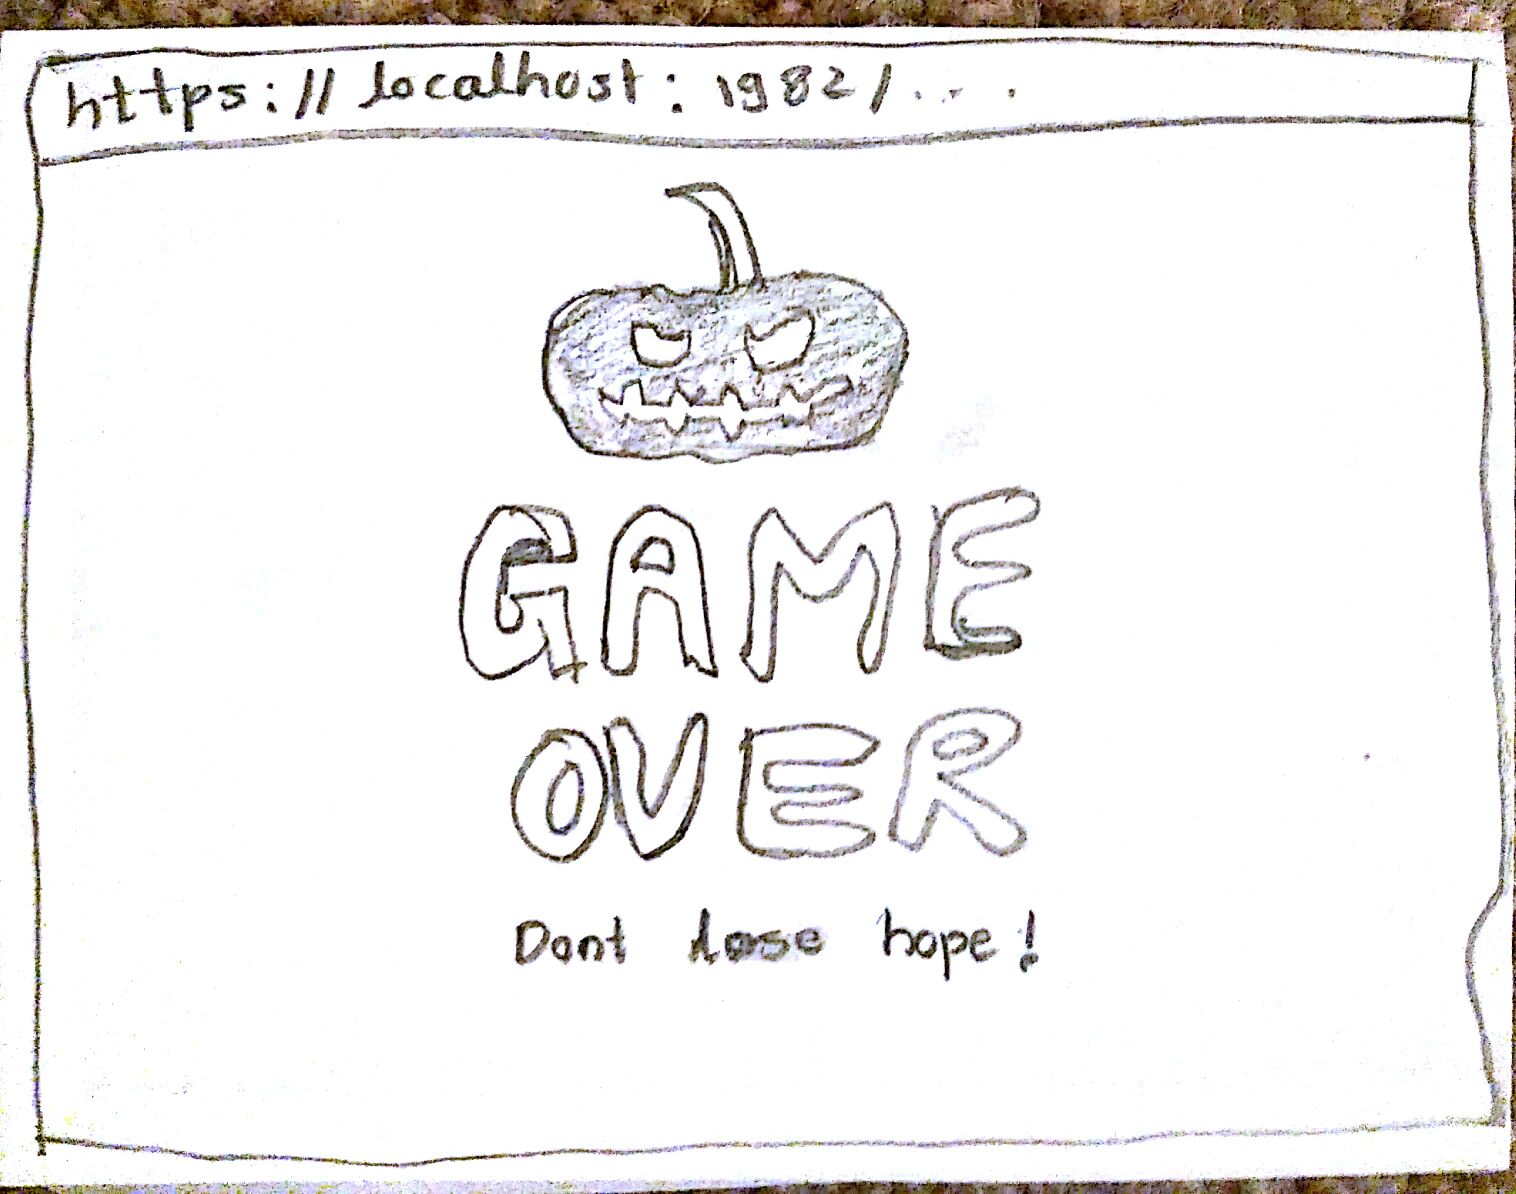 https://localhost:1982/...
GAME
OVER
Dont lose hope!